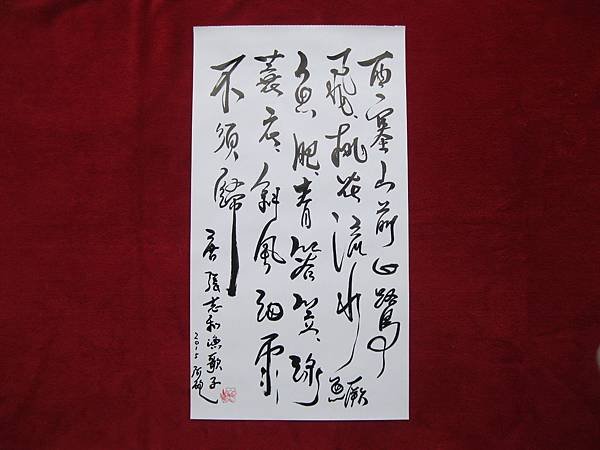 西塞山前白鷺
飛桃花流水鱖
魚肥青箬笠綠
蓑衣斜風細雨
不須歸
唐張志和漁歌子
2015